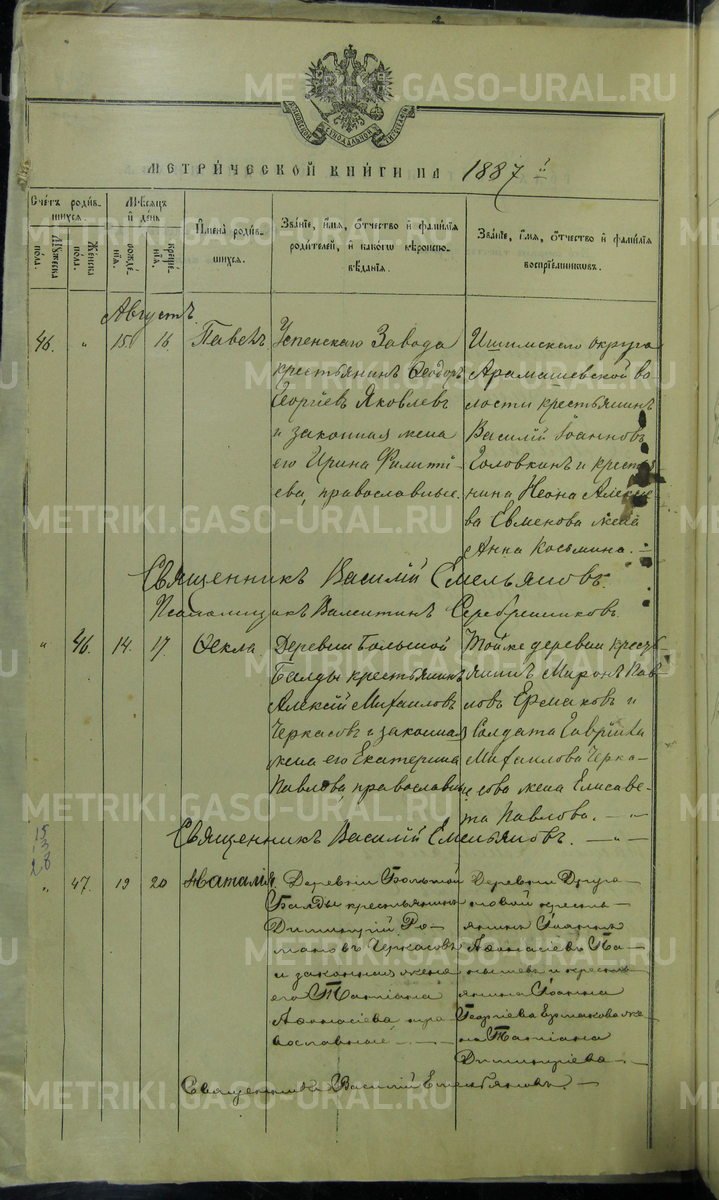 METRIKI.GASO-URAL.RU
МЕТРИЧЕСКОЙ КНИГИ НА 1887 й
Счетъ родив-
шихся.
Мужеска
пола.
Женска
пола.
Мѣсяцъ
и день
рожде-
нія.
креще-
нія.
Имена родив-
шихся.
Званіе, имя, отчество и фамилія
родителей, и какого вѣроиспо-
вѣданія.
Званіе, имя, отчество и фамилія
воспріемниковъ.
Августъ.
46. " 15 16 Павелъ.
Успенскаго Завода
крестьянинъ Ѳеодоръ
Георгіевъ Яковлевъ
и законная жена
его Ирина
ева, православные.
Ишимскаго округа
Арамашевской во
лости крестьянинъ
Василій Іоанновъ
Головкинъ и крестья
нина Алексѣе
ва Евменова жена
Анна Косьмина.
METRIKI.GASO-URAL.RU
Священникъ Василій Емельяновъ.
Псаломщикъ Валентинъ Серебренниковъ
" 46. 14. 17. Ѳекла
Деревни Большой
Балды крестьянинъ
Алексій Михаиловъ
Черкасовъ и законная
жена его Екатерина
Павлова, православные
METRIKI.GASO-URAL.RU
Той же деревни кресть
янинъ Миронъ Пав
ловъ Ермаковъ и
Солдата Гавріила
Михаилова Черка-
сова жена Елисаве-
та Павлова.
METRIKI.GASO-URAL.RU
Священникъ Василій Емельяновъ.
15
13
28
" 47. 19 20 Наталія.
Деревни Большой
Балды крестьянинъ
Димитрій Ро-
мановъ Черкасовъ
и законная жена
его Татіана
Аѳанасіева, пра
вославные.
Деревни Друга-
новой кресть-
янинъ Іоаннъ
Аѳанасіевъ Па-
нышевъ и кресть-
янина Іоанна
Георгіева Ермакова же-
на Татіана
Димитріева.
METRIKI.GASO-URAL.RU
Священникъ Василій Емельяновъ.
METRIKI.GASO-URAL.RU